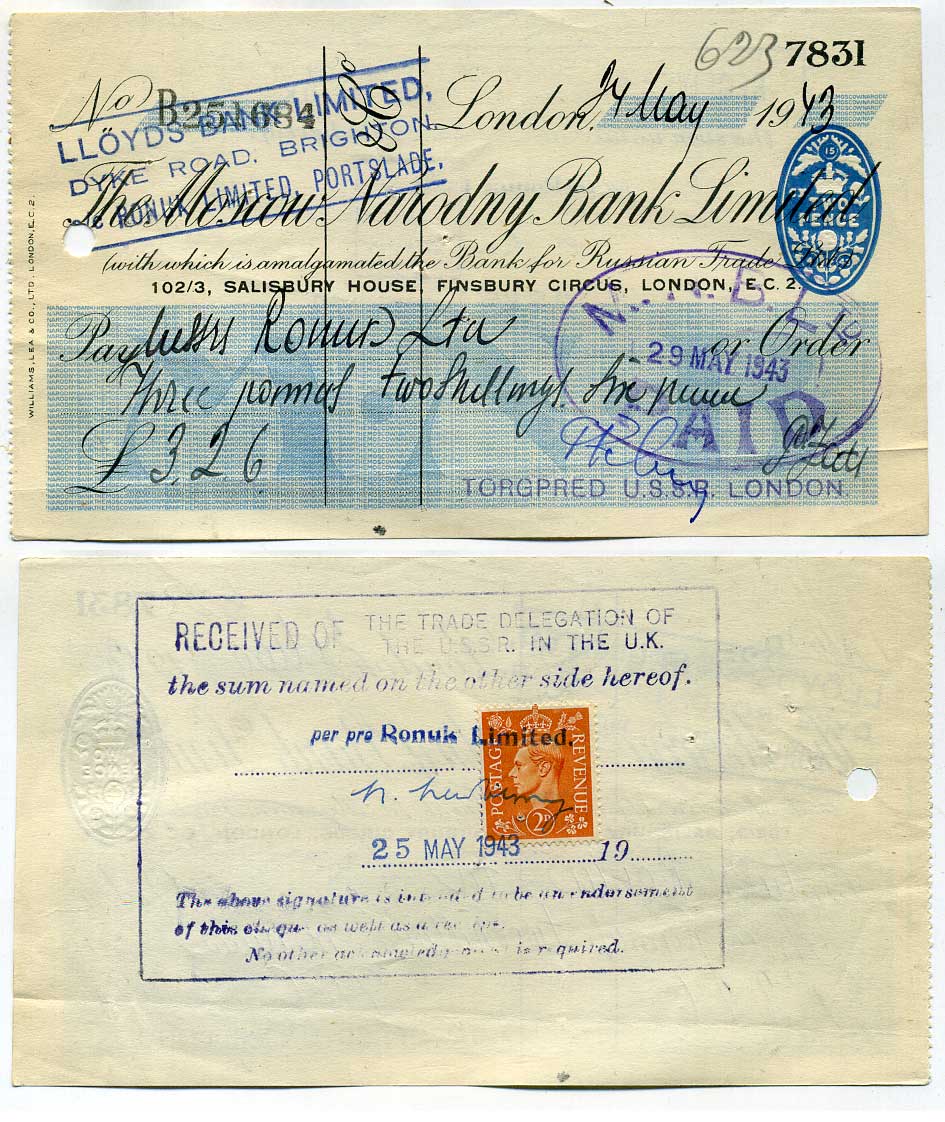 623 7831
No B251684 London, 24 May 1943
LLOYDS BANK LIMITED,
DYKE ROAD, BRIGHTON.
A/c RONUK LIMITED, PORTSLADE.
& Co
The Moscow Narodny Bank Limited
(with which is amalgamated the Bank for Russian Trade Ltd)
102/3, SALISBURY HOUSE, FINSBURY CIRCUS, LONDON, E.C. 2.
WILLIAMS, LEA & CO., LTD. LONDON, E.C.2.
15
PENCE
M.N.B. LTD
29 MAY 1943
PAID
Pay Messrs Ronuk Ltd or Order
Three pounds two shillings six pence
£ 3. 2. 6
TORGPRED U.S.S.R. LONDON.
RECEIVED OF THE TRADE DELEGATION OF
THE U.S.S.R. IN THE U.K.
the sum named on the other side hereof.
per pro Ronuk Limited.
POSTAGE REVENUE
2D
25 MAY 1943 19
The above signature is intended to be an endorsement
of this cheque as well as a receipt.
No other acknowledgment is required.